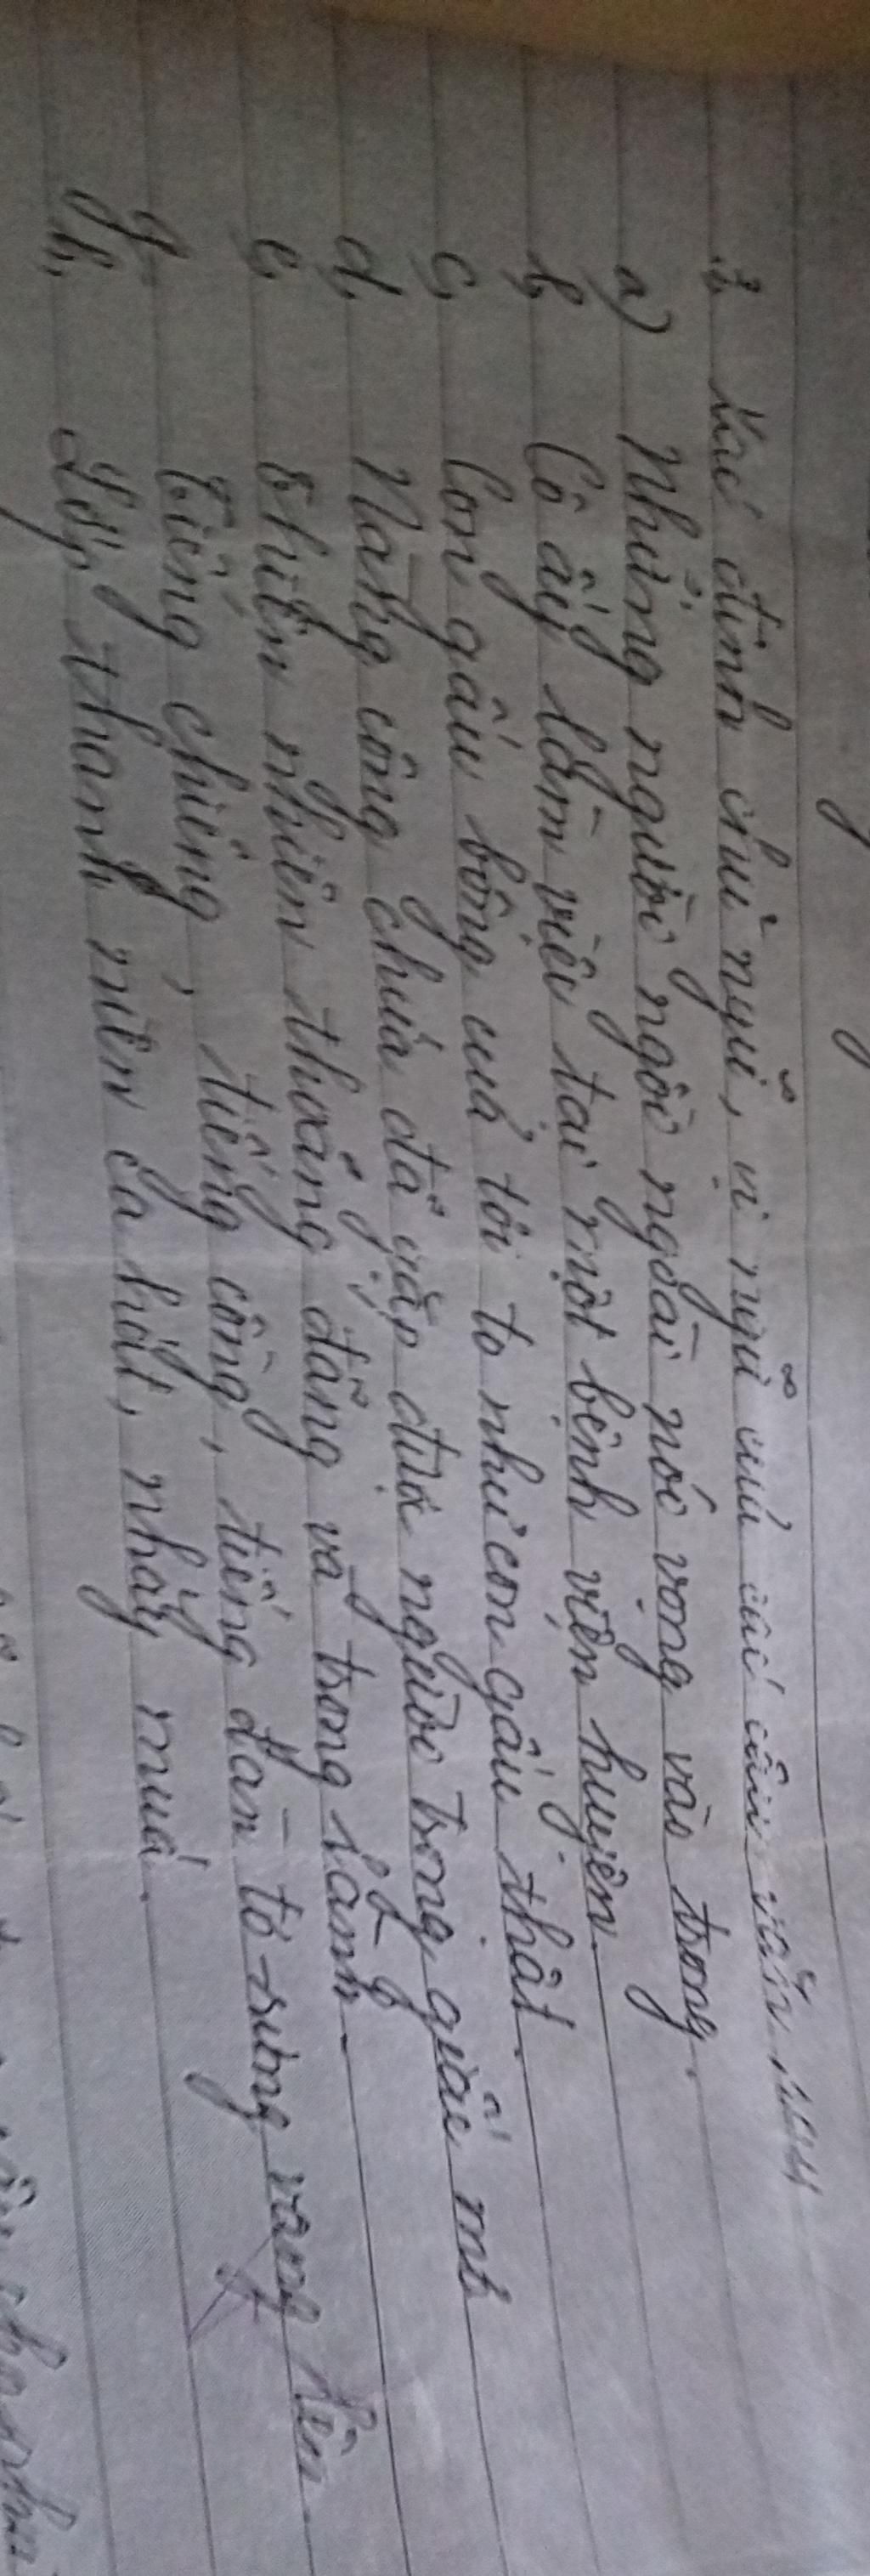 3. Xác định chủ ngữ, vị ngữ của các câu văn sau
a) Những người ngồi ngoài nói vọng vào trong.
b, Cô ấy làm việc tại một bệnh viện huyện.
c, Con gấu bông của tôi to như con gấu thật.
d, Nàng công chúa đã gặp được người trong giấc mơ
e, Thiên nhiên thoáng đãng và trong lành.
g, Tiếng chiêng, tiếng cồng, tiếng đàn tơ-rưng vang lên.
h, Lớp thanh niên ca hát, nhảy múa.